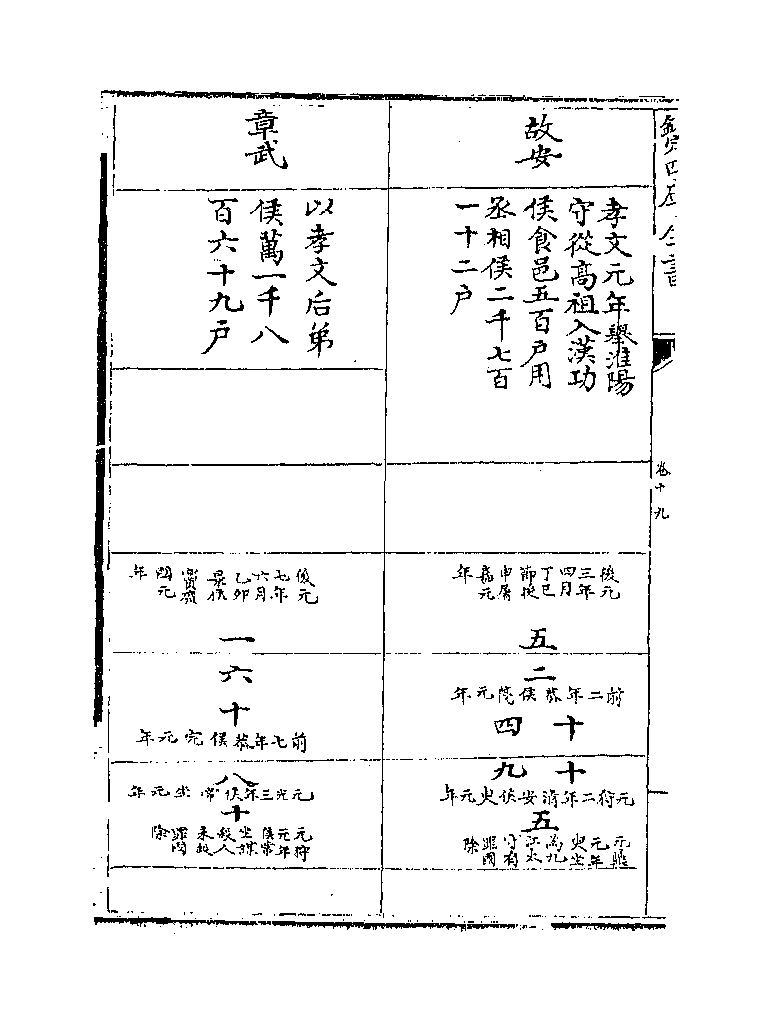 欽定四庫全書
卷十九
故安
孝文元年舉淮陽
守從髙祖入漢功
侯食邑五百戸用
丞相侯二千七百
一十二戸
後元三年四月丁巳節侯申屠嘉元年
五
二
前二年恭侯元年
十四
十九
元狩二年清安侯臾元年
五
元鼎元年臾坐為九江太守有罪國除
章武
以孝文后弟
侯萬一千八
百六十九戸
後元七年六月乙卯景侯竇廣國元年
一
六
十
前七年恭侯完元年
八
元光三年侯常坐元年
十
元狩元年侯常坐謀殺人未殺罪國除